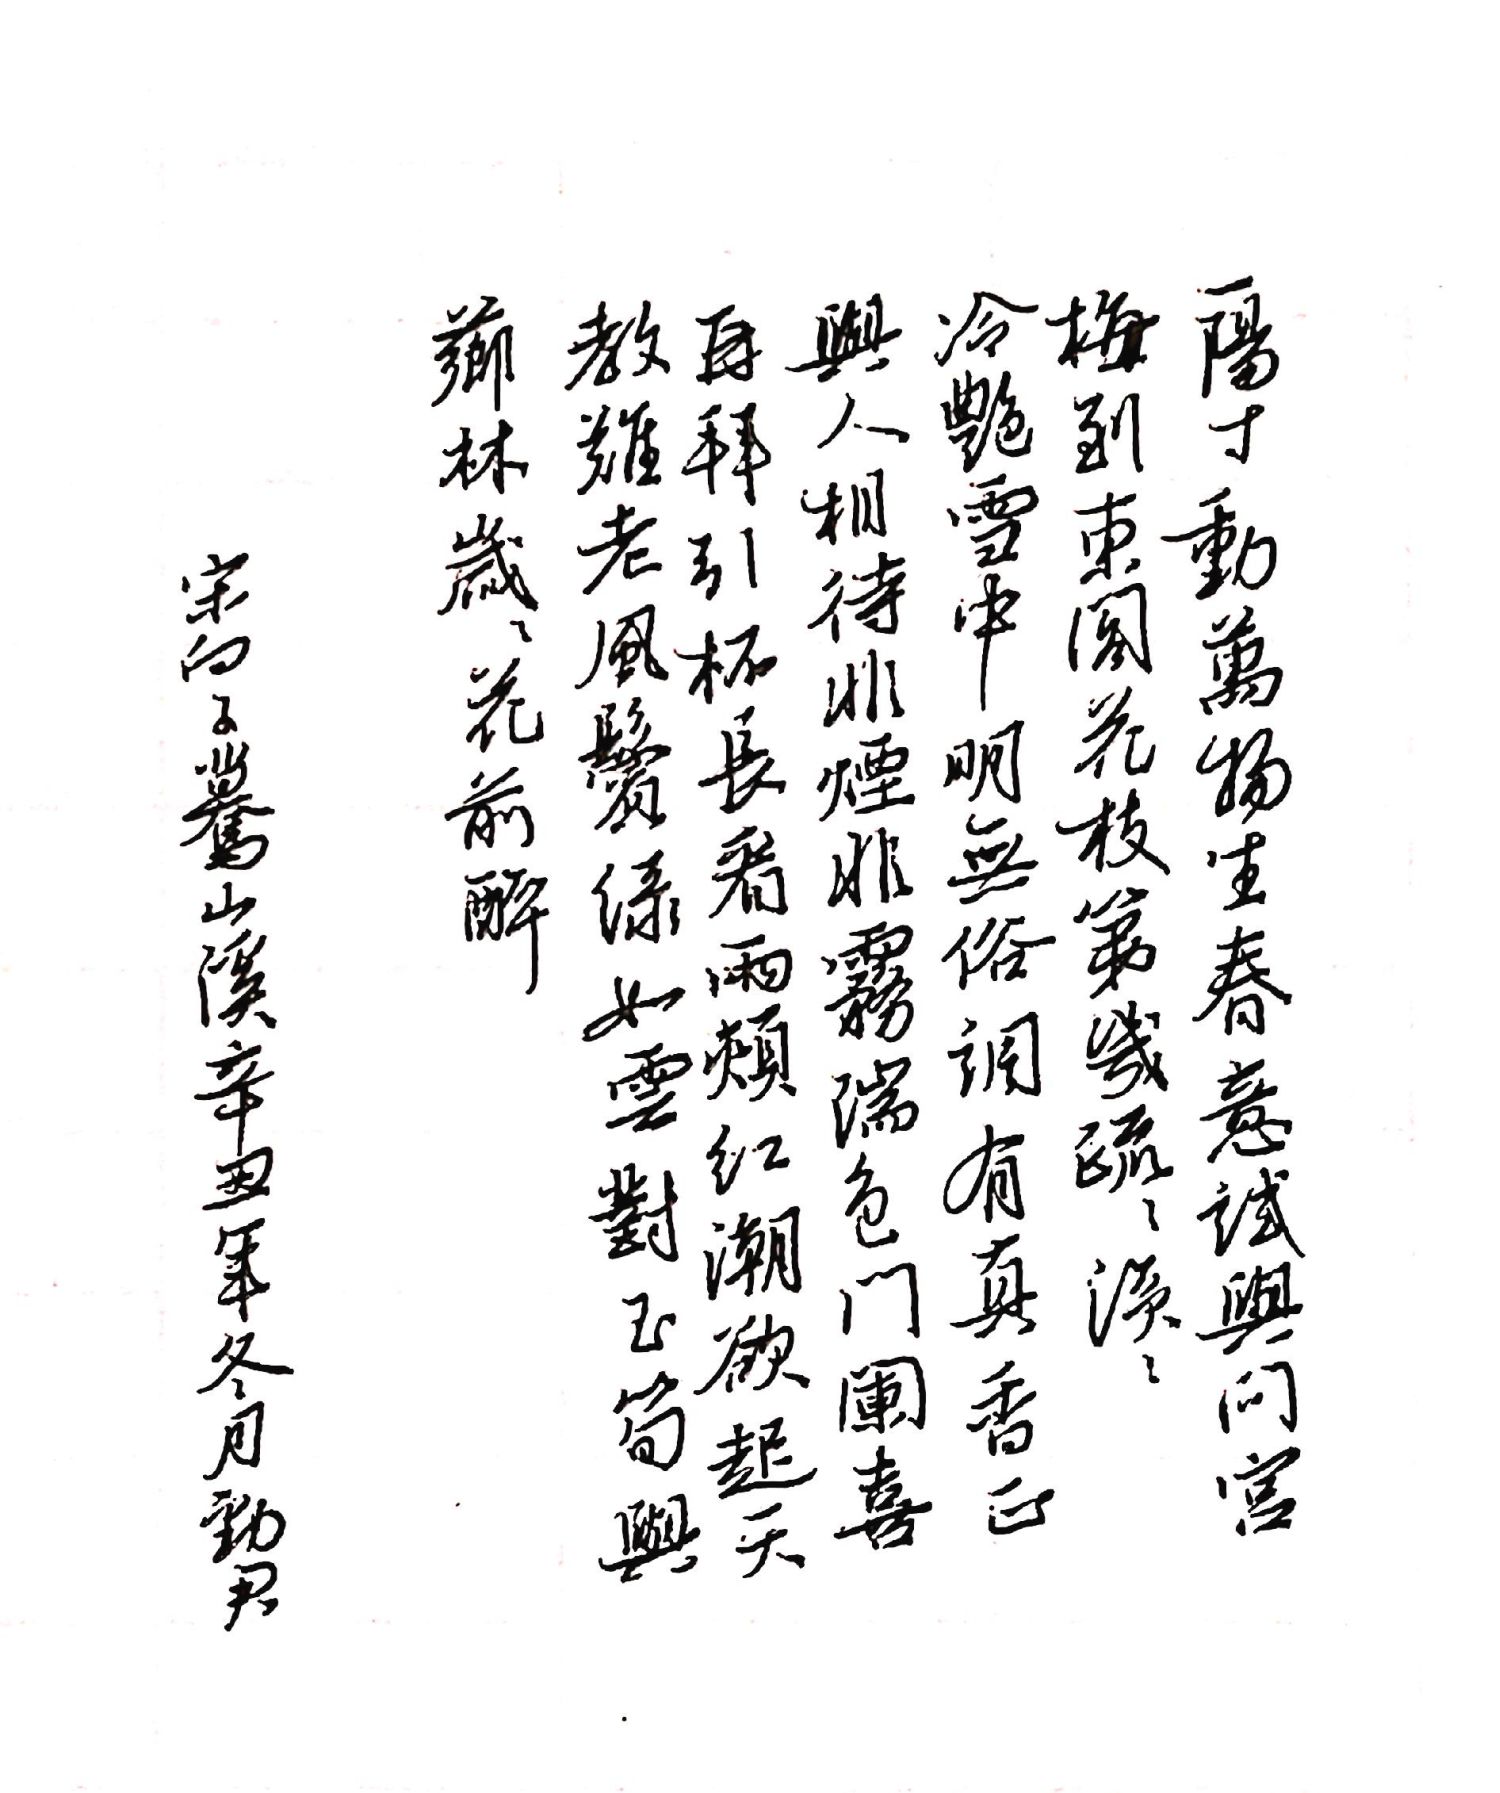 一陽才動萬物生春意試與問宮
梅到東閣花枝第幾疏〻淡〻
冷艷雪中明無俗調有真香正
與人相待非煙非霧瑞色門闌喜
再拜引杯長看兩頰紅潮欲起天
教難老風鬢綠如雲對玉筍與
薌林歲〻花前醉
宋向子諲驀山溪辛丑年冬月勤君